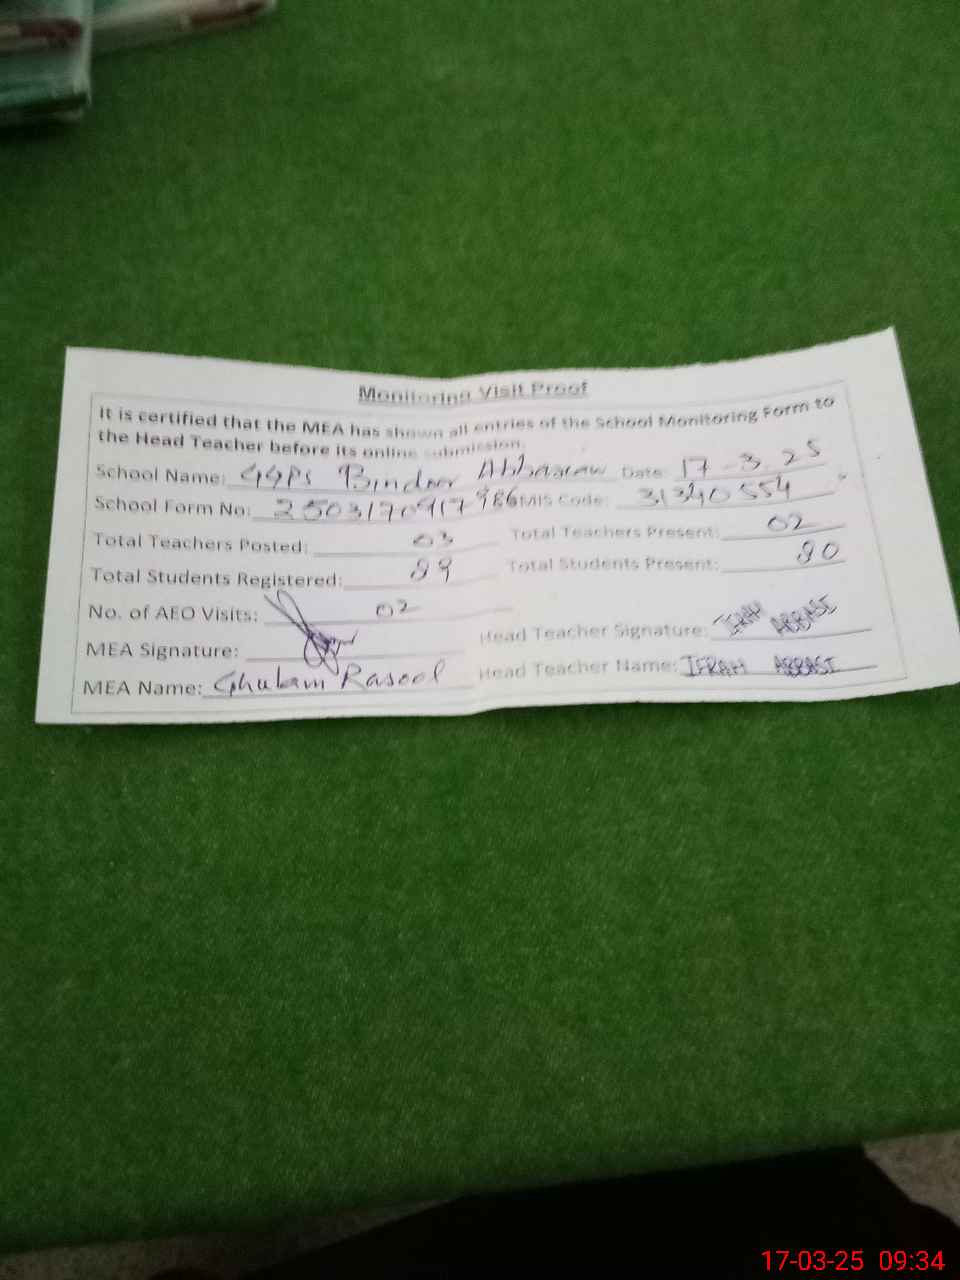 Monitoring Visit Proof
It is certified that the MEA has shown all entries of the School Monitoring Form to
the Head Teacher before its online submission.
School Name: GGPS Bindoor Abbasian Date: 17-3-25
School Form No: 2503170917986 EMIS Code: 31340554
Total Teachers Posted: 03 Total Teachers Present: 02
Total Students Registered: 89 Total Students Present: 80
No. of AEO Visits: 02
MEA Signature: Head Teacher Signature: IFRAH ABBASI
MEA Name: Ghulam Rasool Head Teacher Name: IFRAH ABBASI
17-03-25 09:34